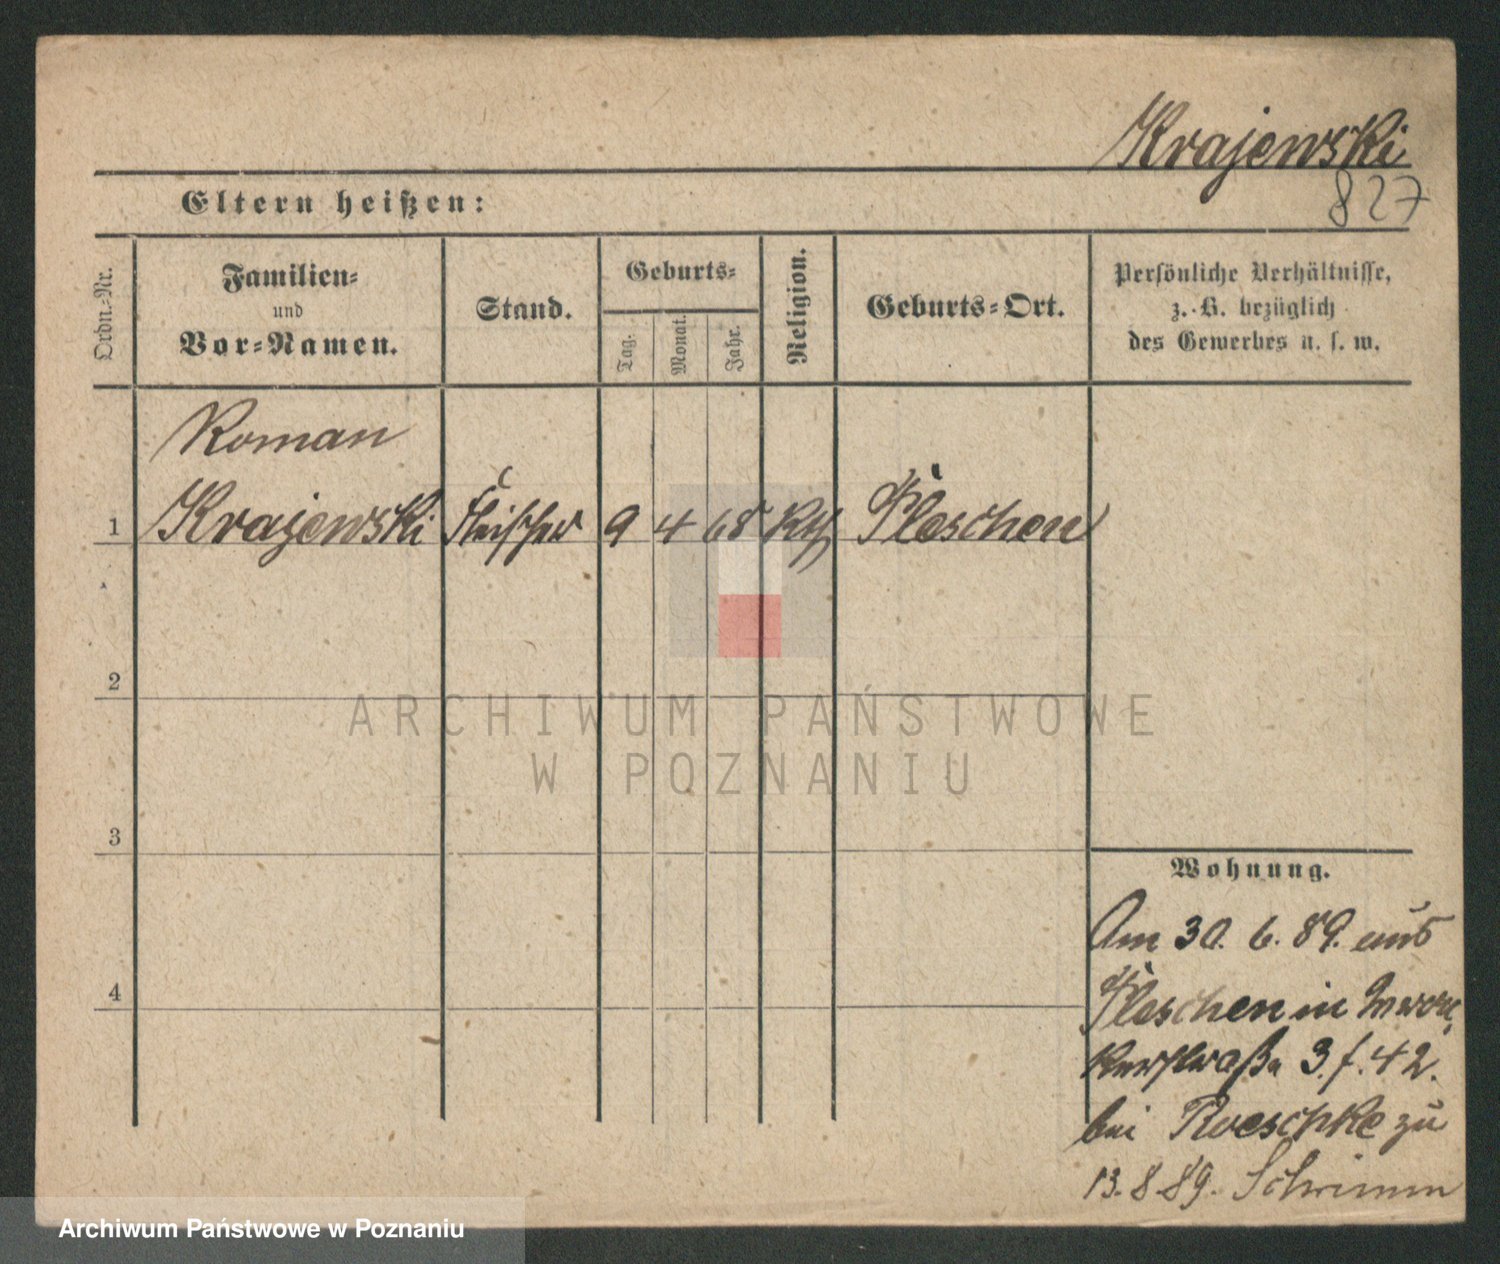 Krajewski
827
Eltern heißen:
Ordn.-Nr.
Familien-
und
Vor-Namen.
Stand.
Geburts-
Tag.
Monat.
Jahr.
Religion.
Geburts-Ort.
Persönliche Verhältnisse,
z. B. bezüglich
des Gewerbes u. s. w.
Roman
1 Krajewski Fleischer 9 4 68 Kth Pleschen
2
3
4
Wohnung.
Am 30. 6. 89. aus
Pleschen in
3. f. 42.
bei Roeschke zu
13. 8 89. Schrimm
ARCHIWUM PAŃSTWOWE
W POZNANIU
Archiwum Państwowe w Poznaniu